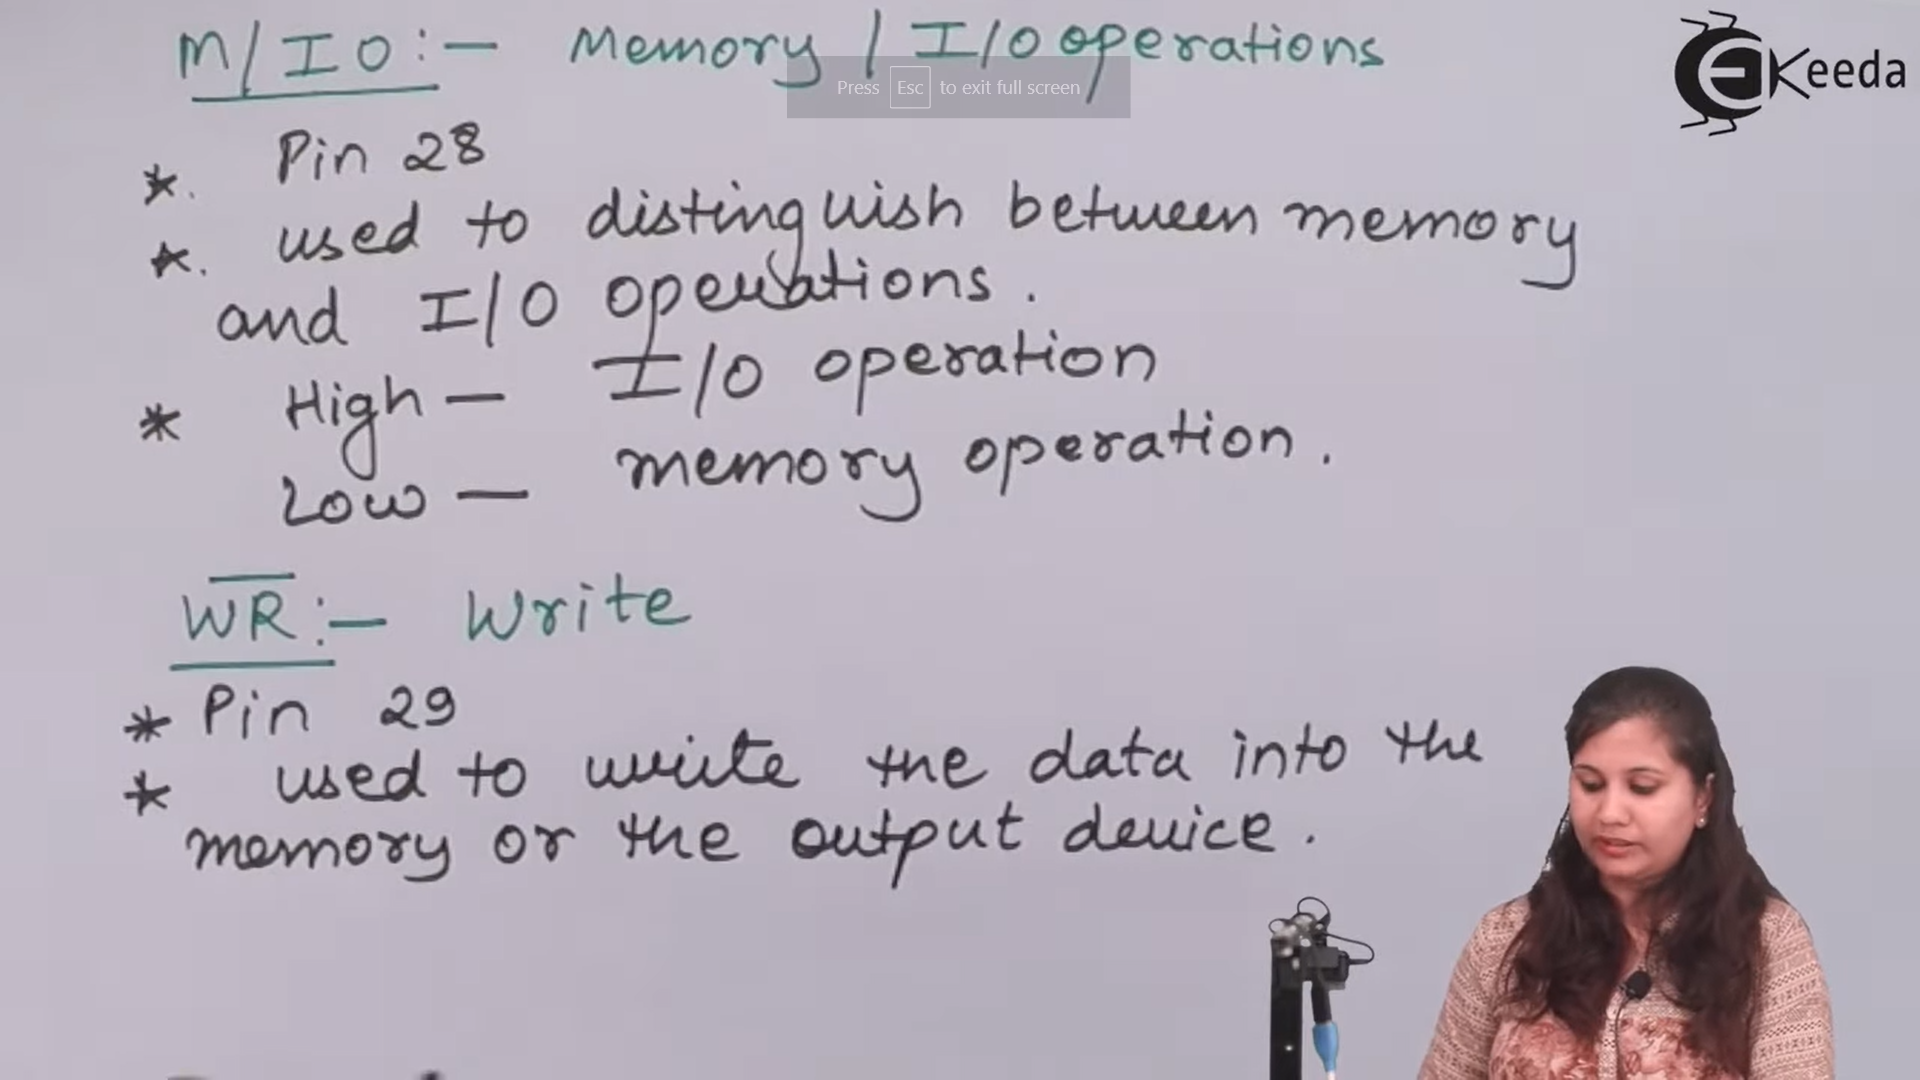 M/IO:- Memory / I/O operations
Press Esc to exit full screen
EKeeda
*. Pin 28
*. used to distinguish between memory
and I/O operations.
* High — I/O operation
Low — memory operation.
W̅R̅:- Write
* Pin 29
* used to write the data into the
memory or the output device.